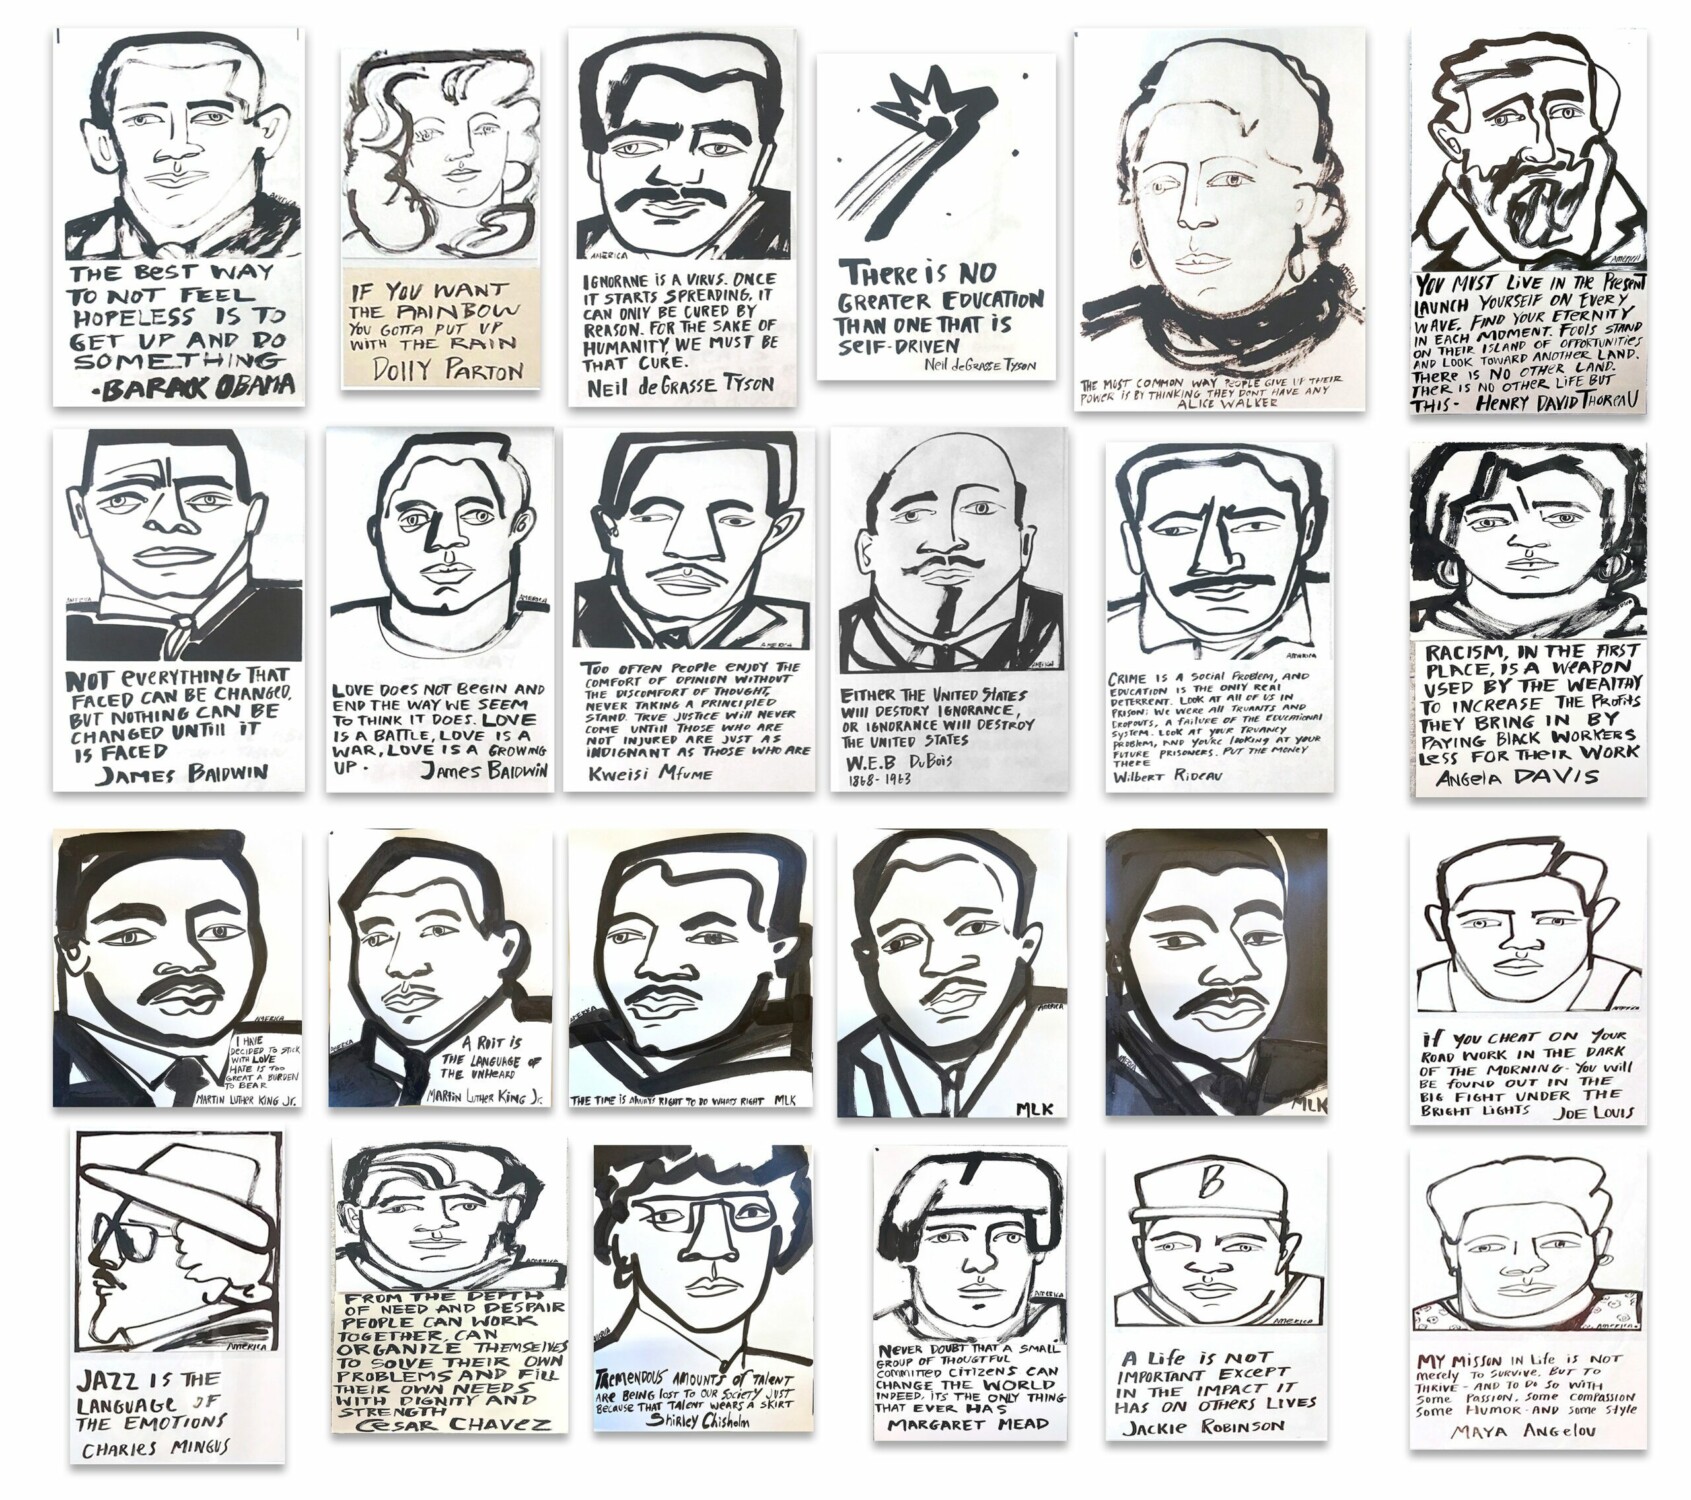 THE BEST WAY
TO NOT FEEL
HOPELESS IS TO
GET UP AND DO
SOMETHING
-BARACK OBAMA
IF YOU WANT
THE RAINBOW
YOU GOTTA PUT UP
WITH THE RAIN
DOLLY PARTON
AMERICA
IGNORANE IS A VIRUS. ONCE
IT STARTS SPREADING, IT
CAN ONLY BE CURED BY
REASON. FOR THE SAKE OF
HUMANITY, WE MUST BE
THAT CURE.
NEIL deGRASSE TYSON
THERE IS NO
GREATER EDUCATION
THAN ONE THAT IS
SELF-DRIVEN
NEIL deGRASSE TYSON
THE MOST COMMON WAY PEOPLE GIVE UP THEIR
POWER IS BY THINKING THEY DONT HAVE ANY
ALICE WALKER
AMERICA
YOU MUST LIVE IN THE PRESENT
LAUNCH YOURSELF ON EVERY
WAVE. FIND YOUR ETERNITY
IN EACH MOMENT. FOOLS STAND
ON THEIR ISLAND OF OPPORTUNITIES
AND LOOK TOWARD ANOTHER LAND.
THERE IS NO OTHER LAND.
THERE IS NO OTHER LIFE BUT
THIS- HENRY DAVID THOREAU
NOT EVERYTHING THAT
FACED CAN BE CHANGED,
BUT NOTHING CAN BE
CHANGED UNTIll IT
IS FACED
JAMES BALDWIN
AMERICA
LOVE DOES NOT BEGIN AND
END THE WAY WE SEEM
TO THINK IT DOES. LOVE
IS A BATTLE, LOVE IS A
WAR, LOVE IS A GROWING
UP. JAMES BALDWIN
AMERICA
TOO OFTEN PEOPLE ENJOY THE
COMFORT OF OPINION WITHOUT
THE DISCOMFORT OF THOUGHT,
NEVER TAKING A PRINCIPLED
STAND. TRUE JUSTICE WILL NEVER
COME UNTIL THOSE WHO ARE
NOT INJURED ARE JUST AS
INDIGNANT AS THOSE WHO ARE
KWEISI MFUME
EITHER THE UNITED STATES
WILL DESTORY IGNORANCE,
OR IGNORANCE WILL DESTROY
THE UNITED STATES
W.E.B DuBois
1868-1963
AMERICA
CRIME IS A SOCIAL PROBLEM, AND
EDUCATION IS THE ONLY REAL
DETERRENT. LOOK AT ALL OF US IN
PRISON: WE WERE ALL TRUANTS AND
DROPOUTS, A FAILURE OF THE EDUCATIONAL
SYSTEM. LOOK AT YOUR TRUANCY
PROBLEM, AND YOU'RE LOOKING AT YOUR
FUTURE PRISONERS. PUT THE MONEY
THERE
WILBERT RIDEAU
RACISM, IN THE FIRST
PLACE, IS A WEAPON
USED BY THE WEALTHY
TO INCREASE THE PROFITS
THEY BRING IN BY
PAYING BLACK WORKERS
LESS FOR THEIR WORK
ANGELA DAVIS
AMERICA
I HAVE
DECIDED TO STICK
WITH LOVE
HATE IS TOO
GREAT A BURDEN
TO BEAR
MARTIN LUTHER KING Jr.
A RIOT IS
THE LANGUAGE OF
THE UNHEARD
MARTIN LUTHER KING Jr.
THE TIME IS ALWAYS RIGHT TO DO WHATS RIGHT MLK
AMERICA
MLK
MLK
IF YOU CHEAT ON YOUR
ROAD WORK IN THE DARK
OF THE MORNING- YOU WILL
BE FOUND OUT IN THE
BIG FIGHT UNDER THE
BRIGHT LIGHTS JOE LOUIS
AMERICA
JAZZ IS THE
LANGUAGE OF
THE EMOTIONS
CHARLES MINGUS
AMERICA
FROM THE DEPTH
OF NEED AND DESPAIR
PEOPLE CAN WORK
TOGETHER, CAN
ORGANIZE THEMSELVES
TO SOLVE THEIR OWN
PROBLEMS AND FILL
THEIR OWN NEEDS
WITH DIGNITY AND
STRENGTH
CESAR CHAVEZ
TREMENDOUS AMOUNTS OF TALENT
ARE BEING LOST TO OUR SOCIETY JUST
BECAUSE THAT TALENT WEARS A SKIRT
Shirley Chisholm
AMERICA
NEVER DOUBT THAT A SMALL
GROUP OF THOUGTFUL
COMMITTED CITIZENS CAN
CHANGE THE WORLD
INDEED, ITS THE ONLY THING
THAT EVER HAS
MARGARET MEAD
B
AMERICA
A LIFE IS NOT
IMPORTANT EXCEPT
IN THE IMPACT IT
HAS ON OTHERS LIVES
JACKIE ROBINSON
AMERICA
MY MISSON IN LIFE IS NOT
MERELY TO SURVIVE, BUT TO
THRIVE - AND TO DO SO WITH
SOME PASSION, SOME COMPASSION
SOME HUMOR - AND SOME STYLE
MAYA ANGELOU